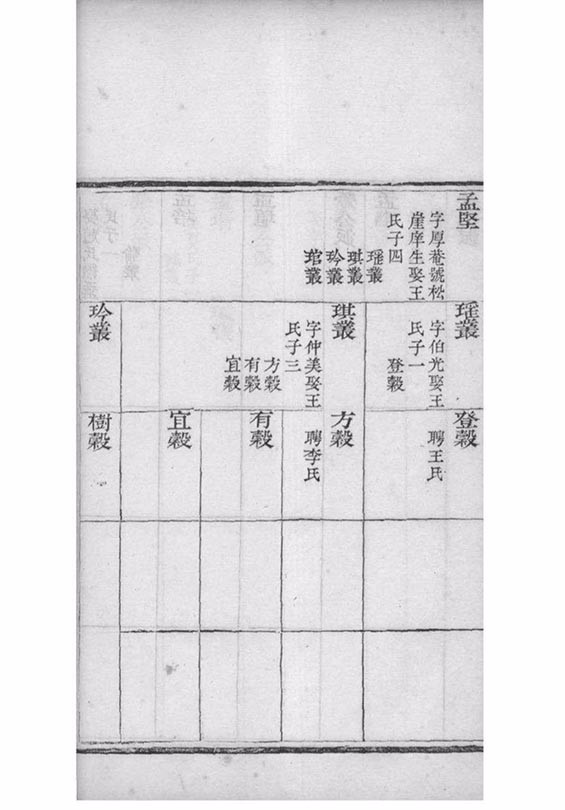 孟堅
字厚菴號松
崖庠生娶王
氏子四
瑤叢
琪叢
玲叢
琯叢
瑤叢
字伯光娶王
氏子一
登穀
琪叢
字仲美娶王
氏子三
方穀
有穀
宜穀
玲叢
登穀
聘王氏
方穀
聘李氏
有穀
宜穀
樹穀